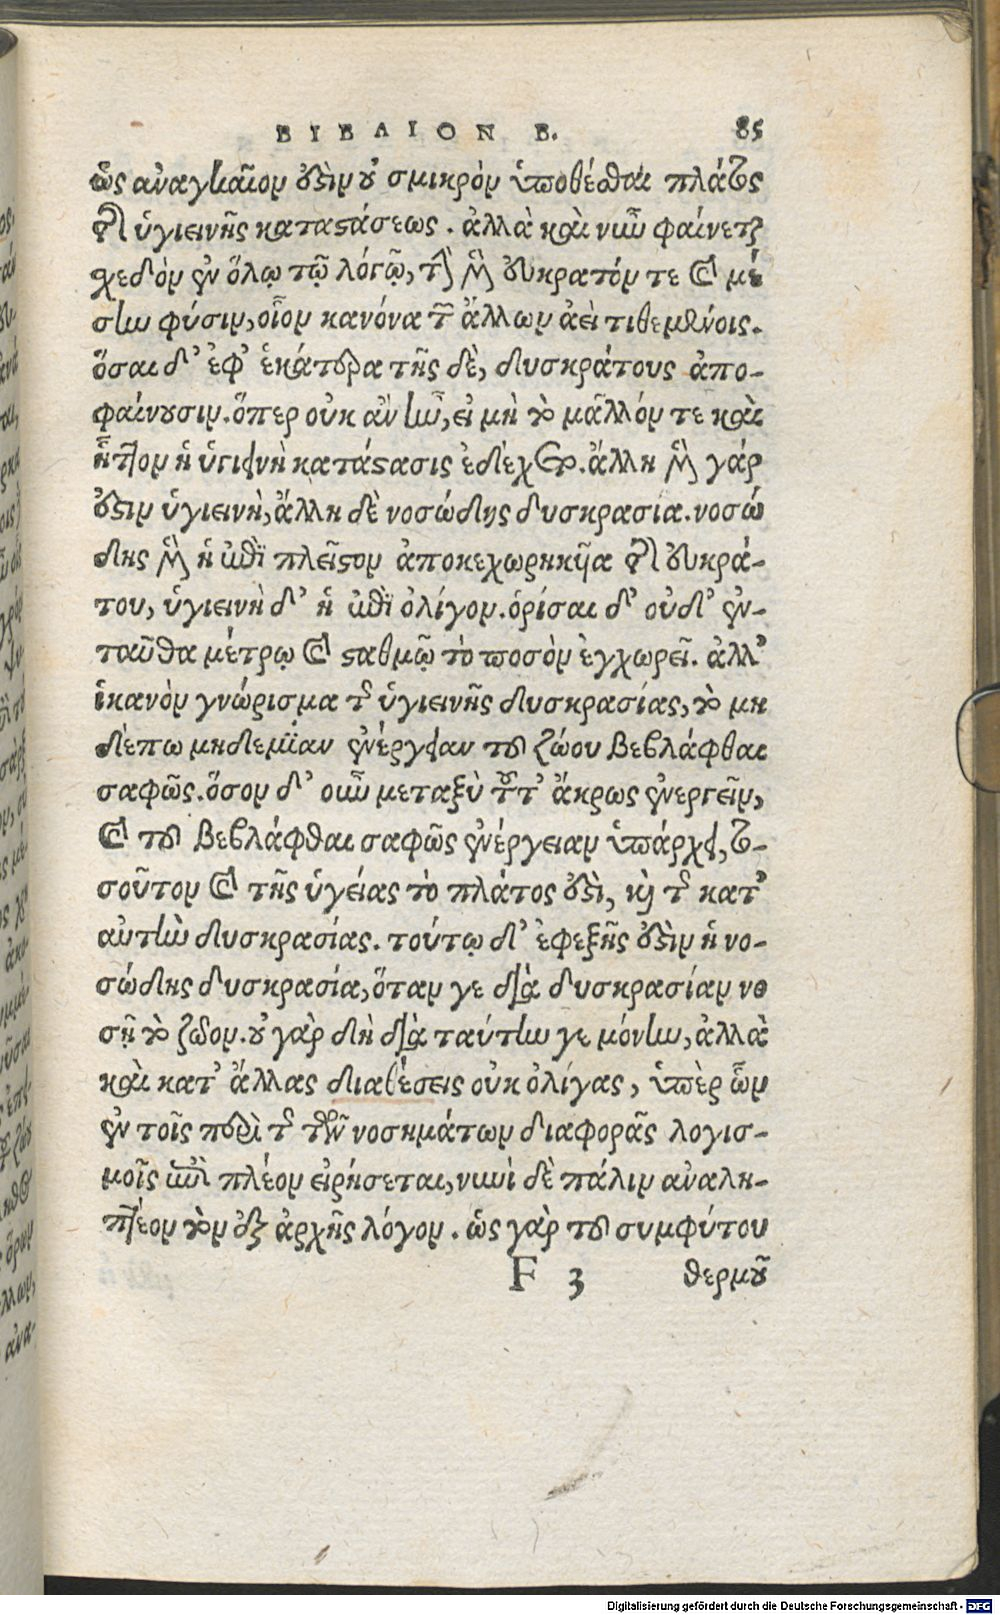 ΒΙΒΛΙΟΝ Β. 85
ὡς ἀναγκαῖον ἐστὶν οὐ σμικρὸν ὑποθέσθαι πλάτος
τῆς ὑγιεινῆς καταστάσεως. ἀλλὰ καὶ νῦν φαίνεται
σχεδὸν ἐν ὅλῳ τῷ λόγῳ, τὴν μὲν εὔκρατόν τε καὶ μέ
σην φύσιν, οἷον κανόνα τῶν ἄλλων ἀεὶ τιθεμένοις.
ὅσαι δ’ ἐφ’ ἑκάτερα τῆς δὲ, δυσκράτους ἀπο-
φαίνουσιν. ὅπερ οὐκ ἂν ἦν, εἰ μὴ τὸ μᾶλλόν τε καὶ
ἧττον ἡ ὑγιεινὴ κατάστασις ἐδέχετο. ἄλλη μὲν γάρ
ἐστιν ὑγιεινὴ, ἄλλη δὲ νοσώδης δυσκρασία. νοσώ
δης μὲν ἡ ἐπὶ πλεῖστον ἀποκεχωρηκυῖα τῆς εὐκρά-
του, ὑγιεινὴ δ’ ἡ ἐπὶ ὀλίγον. ὁρίσαι δ’ οὐδ’ ἐν-
ταῦθα μέτρῳ καὶ σταθμῷ τὸ ποσὸν ἐγχωρεῖ. ἀλλ’
ἱκανὸν γνώρισμα τῆς ὑγιεινῆς δυσκρασίας, τὸ μη
δέπω μηδεμίαν ἐνέργειαν τοῦ ζώου βεβλάφθαι
σαφῶς. ὅσον δ’ οὖν μεταξὺ τοῦ τ’ ἄκρως ἐνεργεῖν,
καὶ τοῦ βεβλάφθαι σαφῶς ἐνέργειαν ὑπάρχει, το-
σοῦτον καὶ τῆς ὑγείας τὸ πλάτος ἐστὶ, καὶ τῆς κατ’
αὐτὴν δυσκρασίας. τούτῳ δ’ ἐφεξῆς ἐστὶν ἡ νο-
σώδης δυσκρασία, ὅταν γε διὰ δυσκρασίαν νο
σῇ τὸ ζῶον. οὐ γὰρ δὴ διὰ ταύτην γε μόνην, ἀλλὰ
καὶ κατ’ ἄλλας διαθέσεις οὐκ ὀλίγας, ὑπὲρ ὧν
ἐν τοῖς περὶ τῆς τῶν νοσημάτων διαφορᾶς λογισ-
μοῖς ἐπὶ πλέον εἰρήσεται, νυνὶ δὲ πάλιν ἀναλη-
πτέον τὸν ἐξ ἀρχῆς λόγον. ὡς γὰρ τοῦ συμφύτου
F 3 θερμοῦ
Digitalisierung gefördert durch die Deutsche Forschungsgemeinschaft - DFG